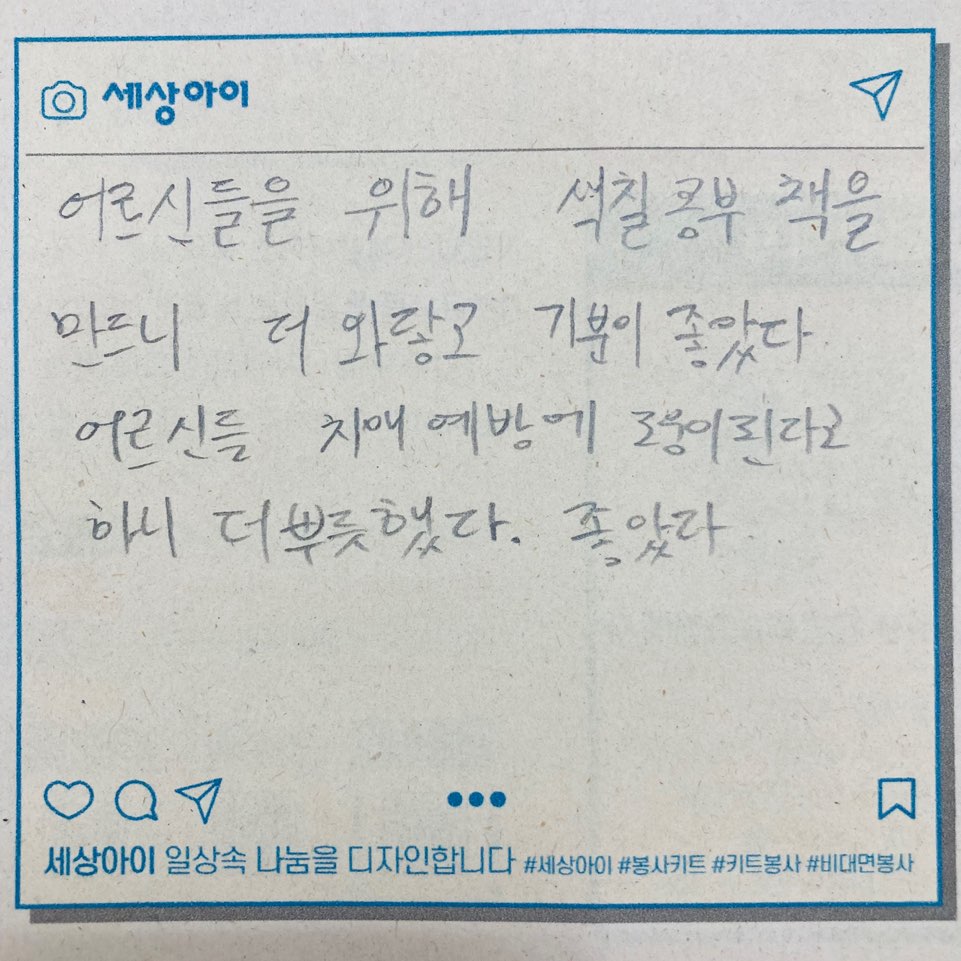 세상아이
어르신들을 위해 색칠 공부 책을
만드니 더 와랗고 기분이 좋았다
어르신들 치매 예방에 도움이 된다고
하니 더 뿌듯했다. 좋았다
세상아이 일상속 나눔을 디자인합니다 #세상아이 #봉사키트 #키트봉사 #비대면봉사